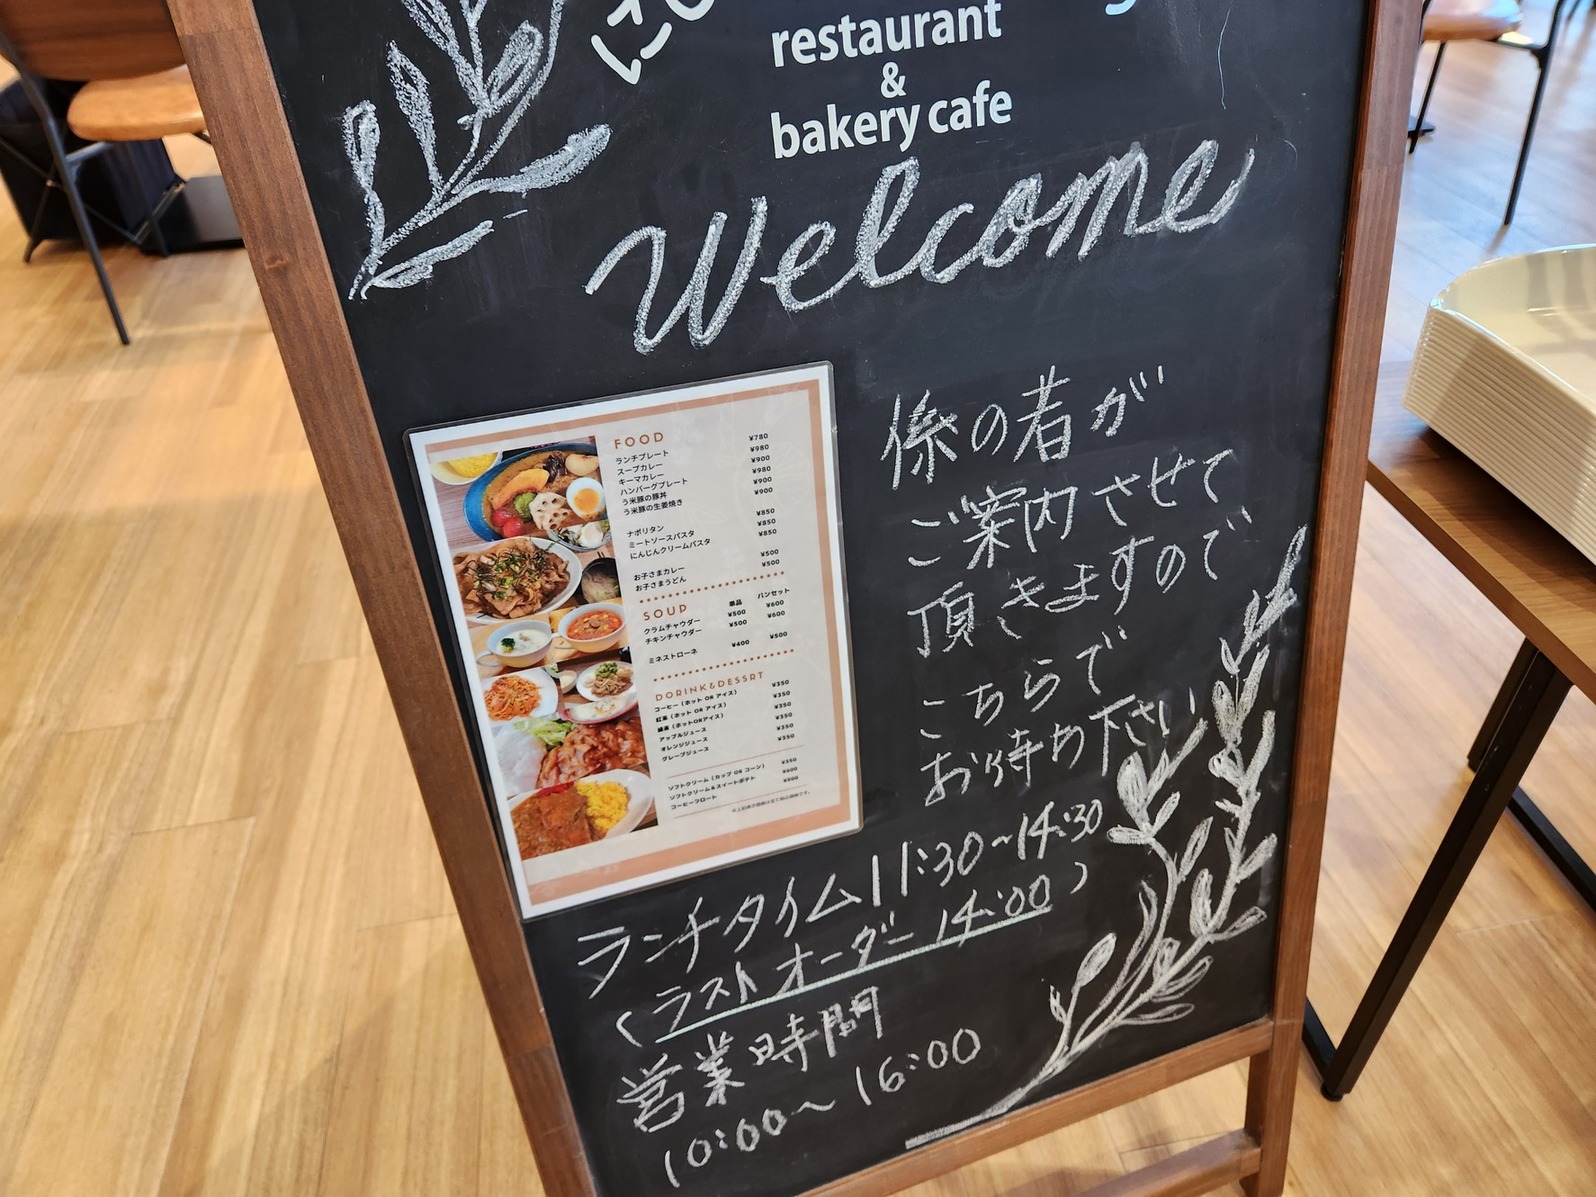 restaurant
&
bakery cafe
Welcome
係の者が
ご案内させて
頂きますので
こちらで
お待ち下さい
FOOD
ランチプレート ¥780
スープカレー ¥980
キーマカレー ¥900
ハンバーグプレート ¥980
う米豚の豚丼 ¥900
う米豚の生姜焼き ¥900
ナポリタン ¥850
ミートソースパスタ ¥850
にんじんクリームパスタ ¥850
お子さまカレー ¥500
お子さまうどん ¥500
SOUP 単品 パンセット
クラムチャウダー ¥500 ¥600
チキンチャウダー ¥500 ¥600
ミネストローネ ¥400 ¥500
DORINK&DESSRT
コーヒー（ホット OR アイス） ¥350
紅茶（ホット OR アイス） ¥350
緑茶（ホットORアイス） ¥350
アップルジュース ¥350
オレンジジュース ¥350
グレープジュース ¥350
ソフトクリーム（カップ OR コーン） ¥350
ソフトクリーム&スイートポテト ¥600
コーヒーフロート ¥500
ランチタイム 11:30~14:30
(ラストオーダー 14:00)
営業時間
10:00~16:00